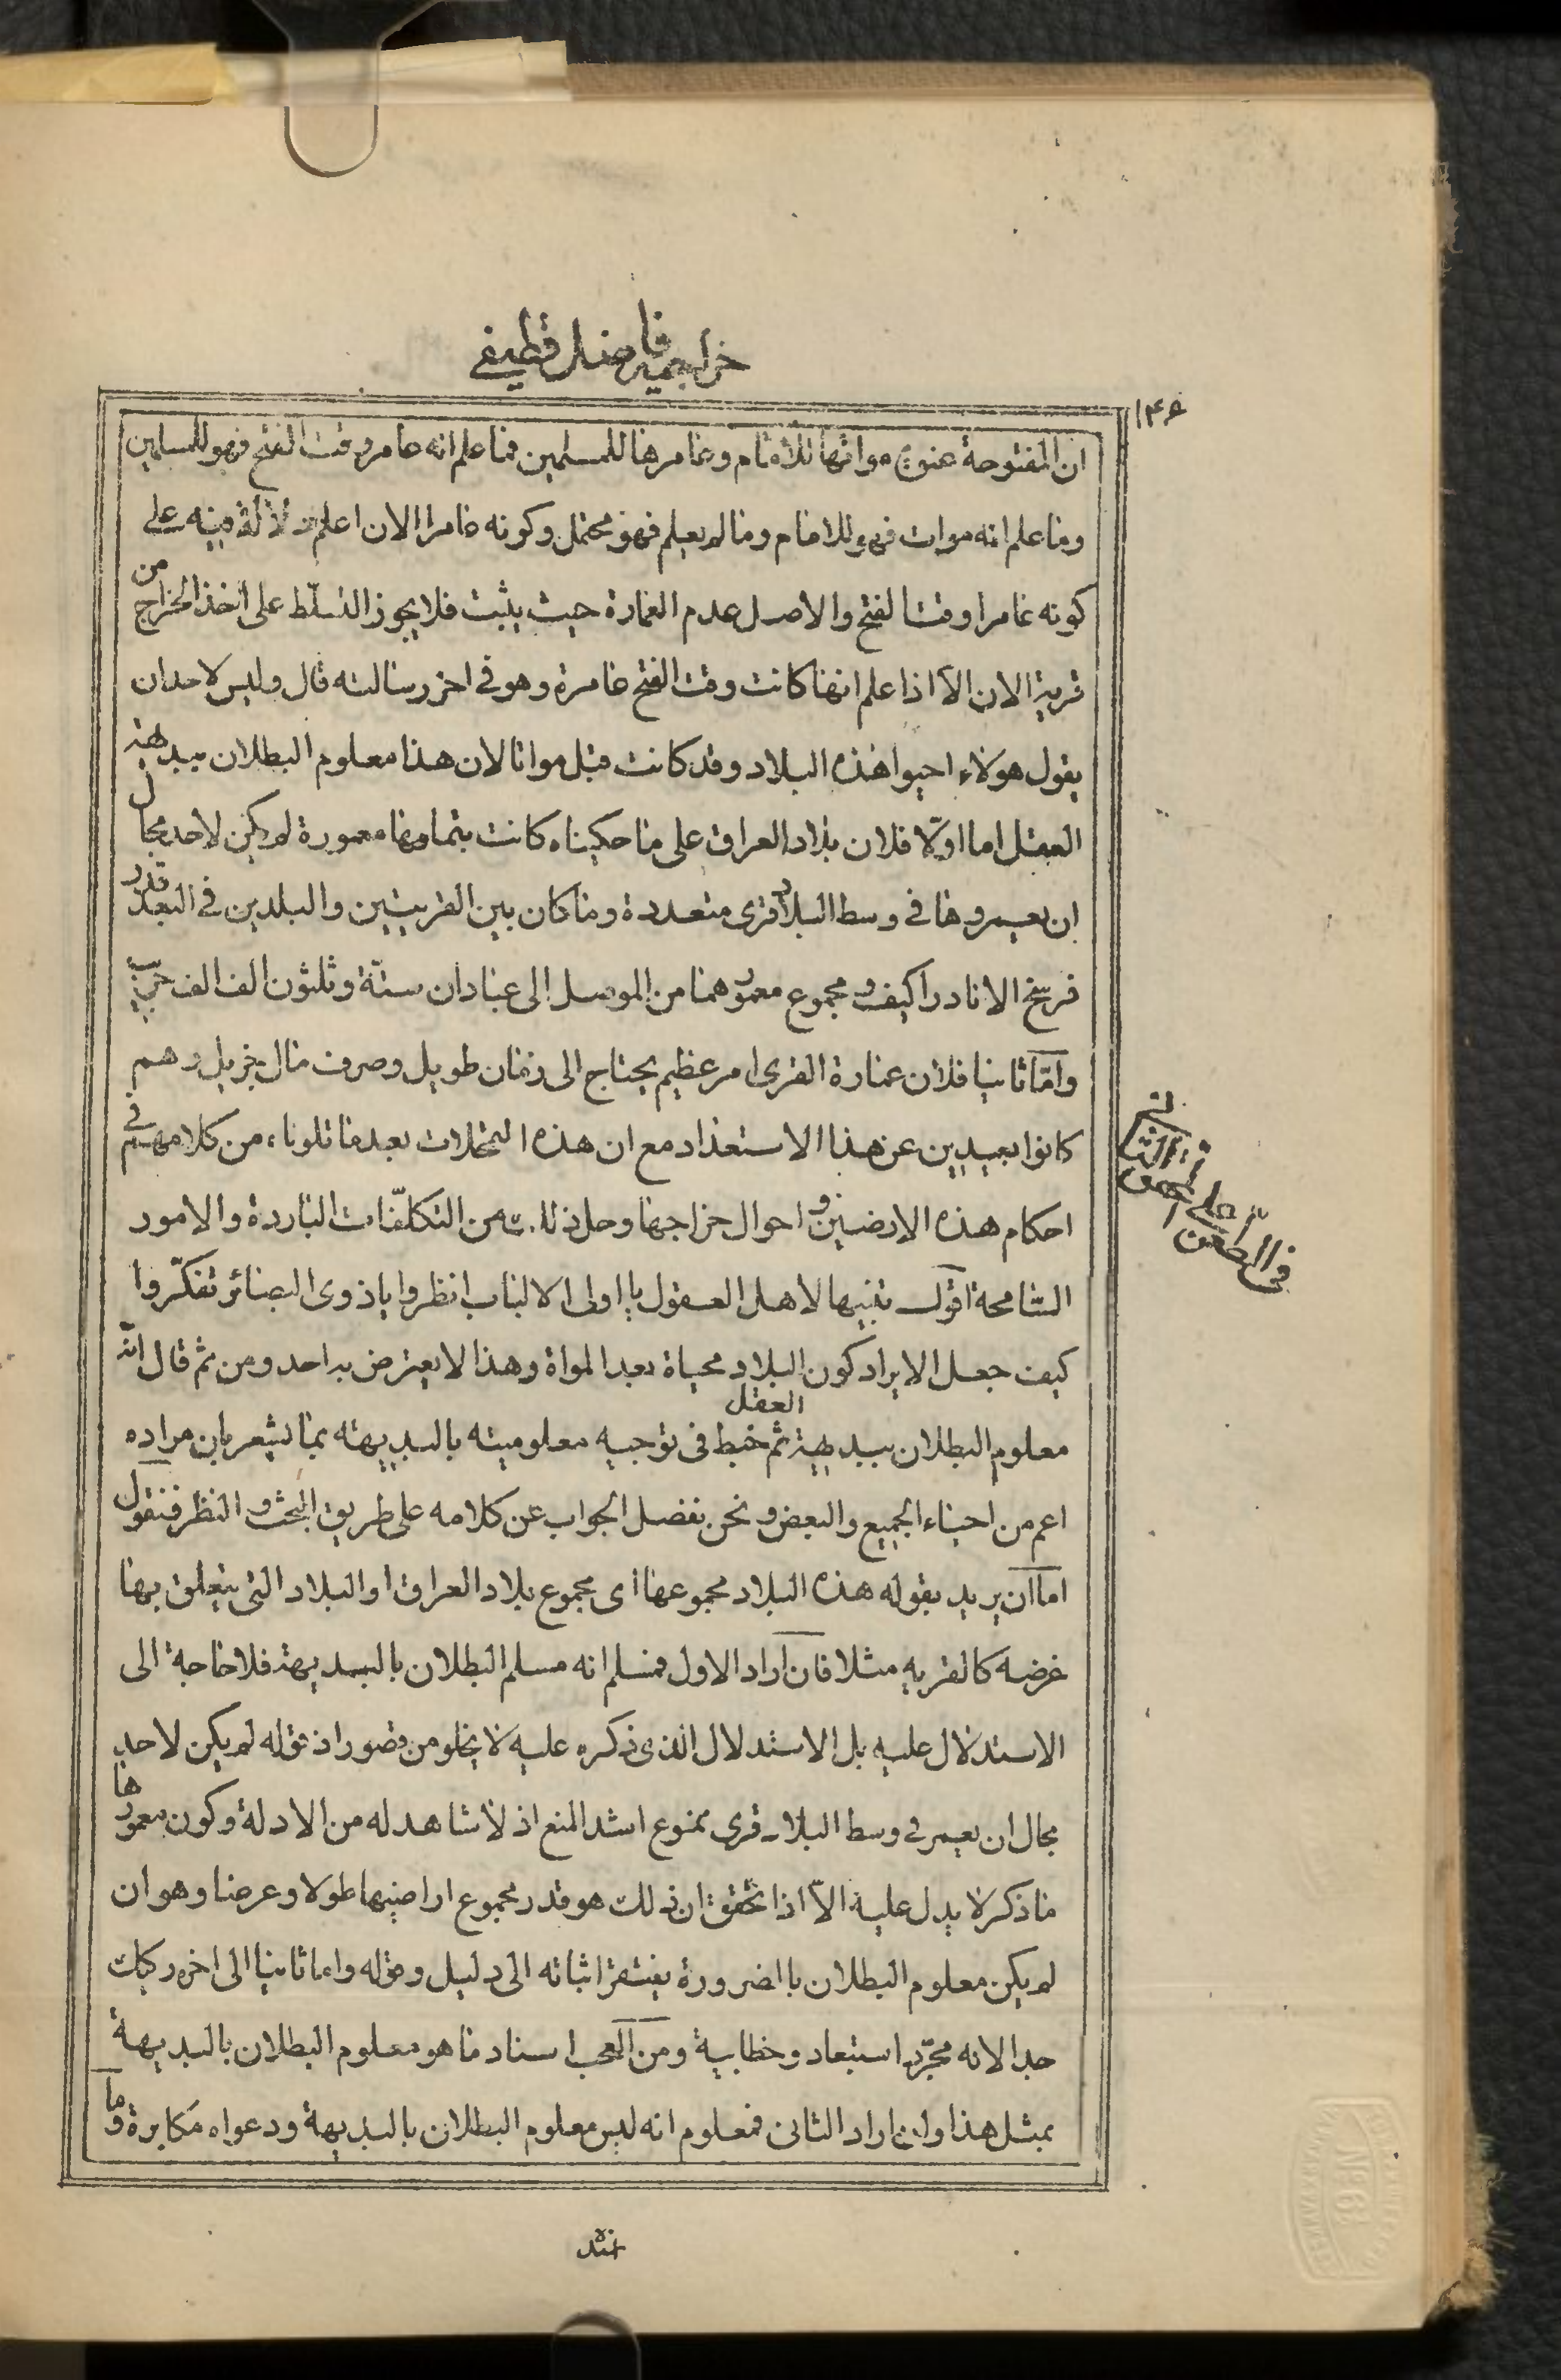 خراجیه فاضل قطیفی
۱۴۶
ان المفتوحة عنوة مواتها للامام وعامرها للمسلمين فما علم انه عامر وقت الفتح فهو للمسلمين
وما علم انه موات فهو للامام وما لم يعلم فهو محتمل وكونه عامرا الان اعلم لا لة فيه على
كونه عامرا وقت الفتح والاصل عدم العمارة حيث يثبت فلا يجوز التسلّط على اخذ الخراج من
قرية الان الّا اذا علم انها كانت وقت الفتح عامرة وهو في اخر رسالته قال وليس لاحد ان
يقول هولاء احيوا هذه البلاد وقد كانت قبل مواتا لان هذا معلوم البطلان ببديهة
العقل اما اولّا فلان بلاد العراق على ما حكيناه كانت بتمامها معمورة لم يكن لاحد مجال
ان يعمروها في وسط البلاد قرى متعددة وما كان بين القريتين والبلدين في البعد قدر
فرسخ الا نادرا كيف ومجموع معمورهما من الموصل الى عبادان ستّة وثلثون الف الف جريب
وامّا ثانيا فلان عمارة القرى امر عظيم يحتاج الى زمان طويل وصرف مال جزيل وهم
كانوا بعيدين عن هذا الاستعداد مع ان هذه التمحلات بعد ما تلوناه من كلامهم في
احكام هذه الارضين و احوال خراجها وحل ذلك من التكلّفات الباردة والامور
السّامحة اقول تنبيها لاهل العقول يا اولى الالباب انظروا يا ذوى البصائر تفكّروا
كيف جعل الايراد كون البلاد محياة بعد المواة وهذا لا يعترض به احد ومن ثم قال انّه
معلوم البطلان ببديهة العقل ثم خبط فى توجيه معلوميته بالبديهته بما يشعر بان مراده
اعم من احياء الجميع والبعض و نحن نفصل الجواب عن كلامه على طريق البحث و النظر فنقول
اما ان يريد بقوله هذه البلاد مجموعها اى مجموع بلاد العراق او البلاد التى يتعلق بها
غرضه كالقريه مثلا فان اراد الاول فمسلم انه مسلم البطلان بالبديهة فلا حاجة الى
الاستدلال عليه بل الاستدلال الذى ذكره عليه لا يخلو من قصور اذ قوله لم يكن لاحد
مجال ان يعمر في وسط البلاد قرى ممنوع اشد المنع اذ لا شاهد له من الادلة وكون معمورها
ما ذكر لا يدل عليه الّا اذا تحقق ان ذلك هو قدر مجموع اراضيها طولا وعرضا وهو ان
لم يكن معلوم البطلان باالضرورة يفتقر اثباته الى دليل وقوله واما ثانيا الى اخره ركيك
جدا لانه مجرّد استبعاد وخطابية ومن العجب اسناد ما هو معلوم البطلان بالبديهة
بمثل هذا وان اراد الثانى فمعلوم انه ليس معلوم البطلان بالبديهة ودعواه مكابرة وما
فى الطعن على المحقق الثانى